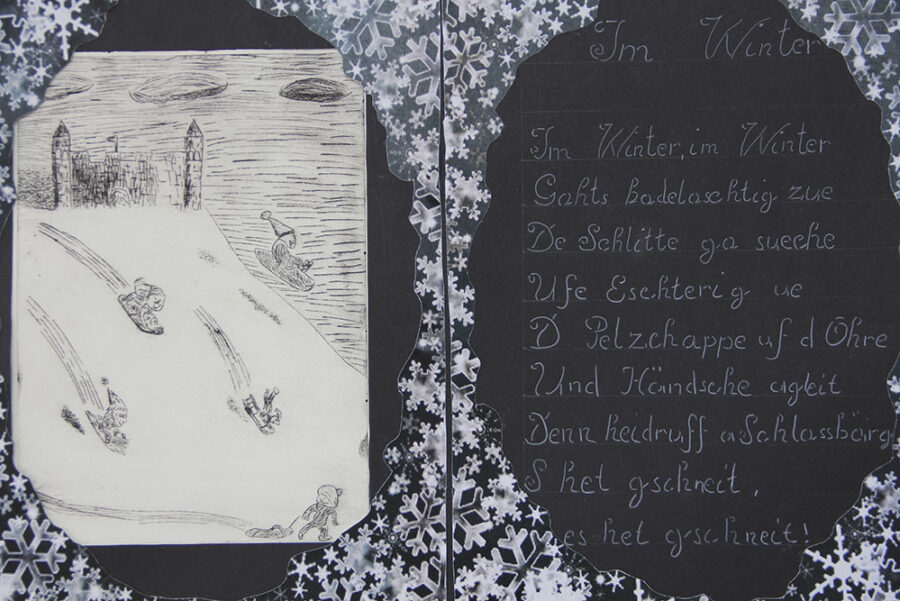 Im Winter
Im Winter, im Winter
Gohts badelaschtig zue
De Schlitte go sueche
Ufe Eschterig ue
D Pelzchappe uf d Ohre
Und Händsche agleit
Denn heidruff a Schlossbärg
S het gschneit,
es het gschneit!